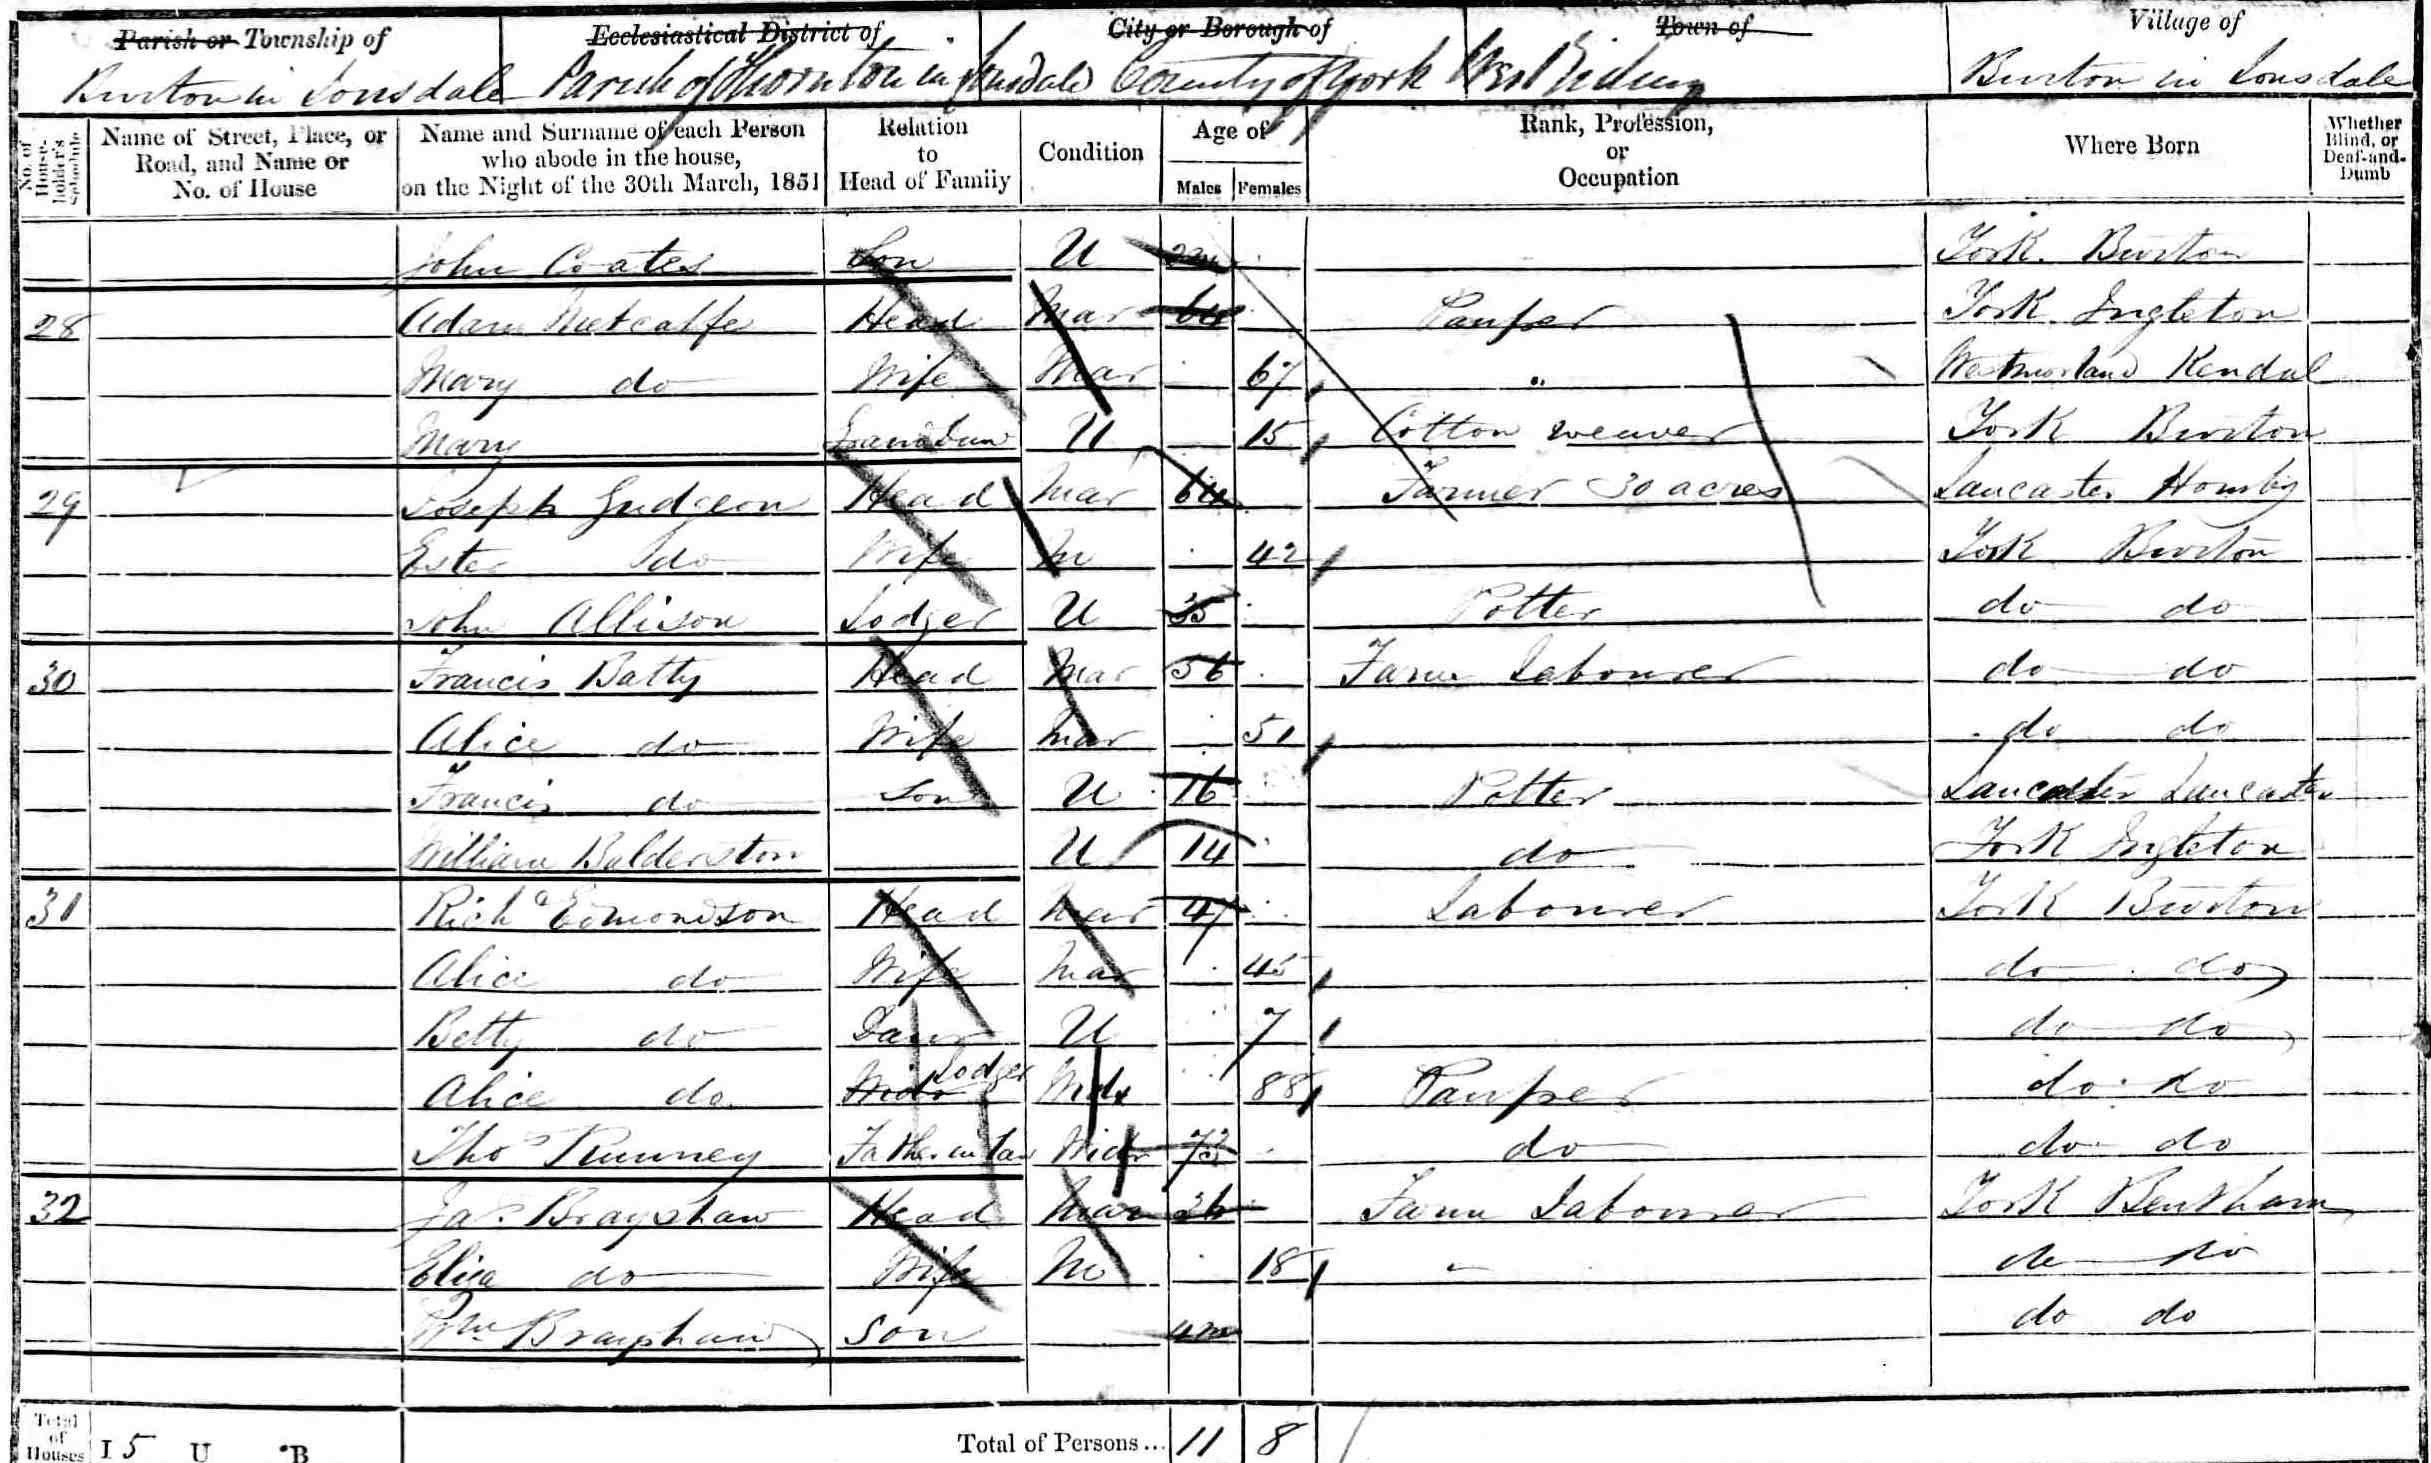 Parish or Township of
Ecclesiastical District of
City or Borough of
Town of
Village of
Burton in Lonsdale Parish of Thornton in Lonsdale County of York West Riding Burton in Lonsdale
No. of House-holder's Schedule
Name of Street, Place, or Road, and Name or No. of House
Name and Surname of each Person who abode in the house, on the Night of the 30th March, 1851
Relation to Head of Family
Condition
Age of
Males Females
Rank, Profession, or Occupation
Where Born
Whether Blind, or Deaf-and-Dumb
John Coates Son U York. Burton
28 Adam Metcalfe Head Mar 64 Pauper York Ingleton
Mary do Wife Mar 67 " Westmorland Kendal
Mary U 15 Cotton weaver York Burton
29 Joseph Gudgeon Head Mar 64 Farmer 30 acres Lancaster Hornby
Ester do Wife M 42 York Burton
John Allison Lodger U 35 Potter do do
30 Francis Batty Head Mar 56 Farm Labourer do do
Alice do Wife Mar 51 do do
Francis do Son U 16 Potter Lancaster Lancaster
William Balderston U 14 do York Ingleton
31 Richd Edmondson Head Mar 47 Labourer York Burton
Alice do Wife Mar 45 do do
Betty do Daur U 7 do do
Alice do Lodger Widw 88 Pauper do do
Thos Father in law Widr 73 do do do
32 Jas Brayshaw Head Mar 36 Farm Labourer York Bentham
Eliza do Wife M 18 do do
Wm Brayshaw Son 4m do do
Total of Houses I 5 U B Total of Persons... 11 8